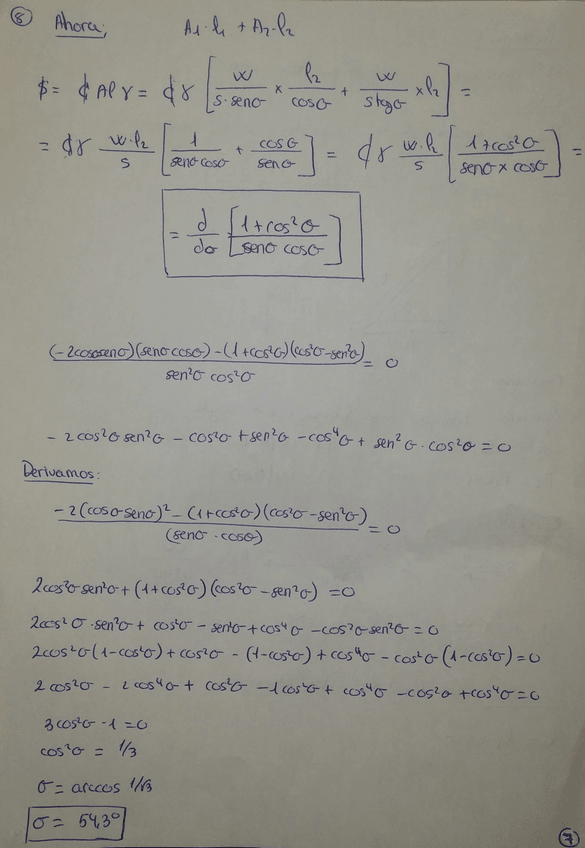 ⑧ Ahora; A₁·l₁ + A₂·l₂
$ = ₵ A l γ = ₵γ [ w / s·senσ × l₂ / cosσ + w / s tgσ × l₂ ] =
= ₵γ w·l₂ / s [ 1 / senσ cosσ + cosσ / senσ ] = ₵γ w·l₂ / s [ 1+cos²σ / senσ × cosσ ] =
= d / dσ [ 1+cos²σ / senσ cosσ ]
(-2cosσsenσ)(senσcosσ) - (1+cos²σ)(cos²σ-sen²σ) / sen²σ cos²σ = 0
- 2cos²σ sen²σ - cos²σ + sen²σ - cos⁴σ + sen²σ · cos²σ = 0
Derivamos:
-2(cosσ·senσ)² - (1+cos²σ)(cos²σ-sen²σ) / (senσ · cosσ) = 0
2cos²σ·sen²σ + (1+cos²σ)(cos²σ - sen²σ) = 0
2cos²σ·sen²σ + cos²σ - sen²σ + cos⁴σ - cos²σ sen²σ = 0
2cos²σ(1-cos²σ) + cos²σ - (1-cos²σ) + cos⁴σ - cos²σ(1-cos²σ) = 0
2cos²σ - 2cos⁴σ + cos²σ - 1cos²σ + cos⁴σ - cos²σ + cos⁴σ = 0
3cos²σ - 1 = 0
cos²σ = 1/3
σ = arccos 1/√3
σ = 54,3º
⑦